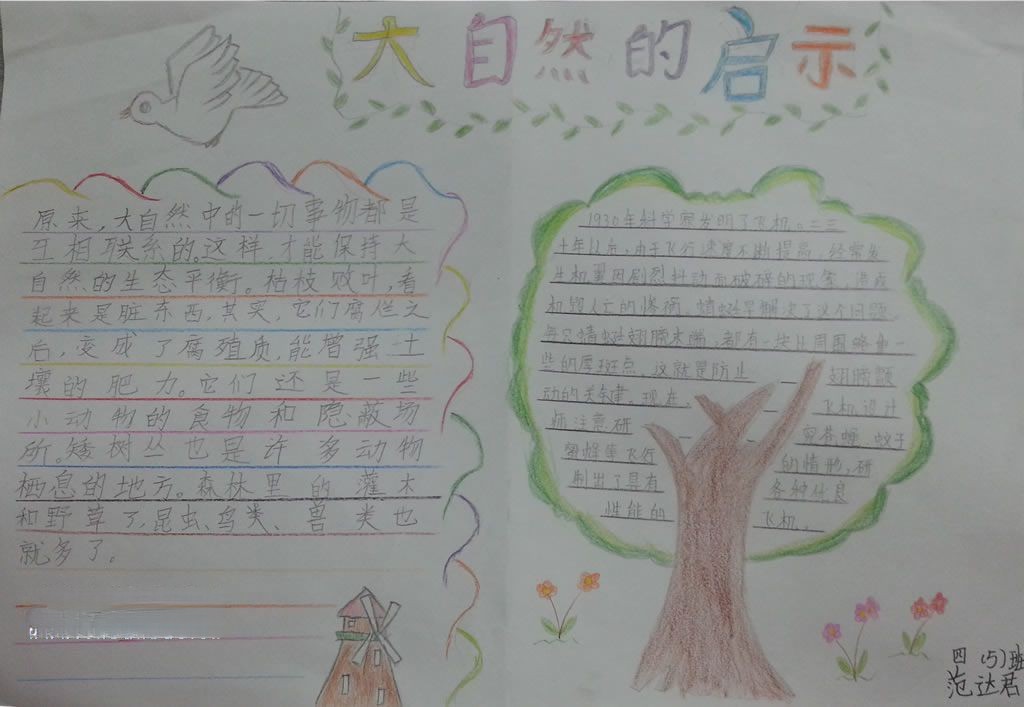 大自然的启示
原来，大自然中的一切事物都是
互相联系的。这样才能保持大
自然的生态平衡。枯枝败叶，看
起来是脏东西，其实，它们腐烂之
后，变成了腐殖质，能增强土
壤的肥力。它们还是一些
小动物的食物和隐蔽场
所。矮树丛也是许多动物
栖息的地方。森林里的灌木
和野草了，昆虫、鸟类、兽类也
就多了。
1930年科学家发明了飞机。二三
十年以后，由于飞行速度不断提高，经常发
生机翼因剧烈抖动而破碎的现象，造成
机毁人亡的惨祸，蜻蜓早解决了这个问题。
每只蜻蜓翅膀末端，都有一块比周围略重一
些的厚斑点，这就是防止 翅膀颤
动的关键。现在， 飞机设计
师注意研 究苍蝇、蚊子
蜜蜂等飞行 的情形，研
制出了具有 各种优良
性能的 飞机。
四(5)班
范达君